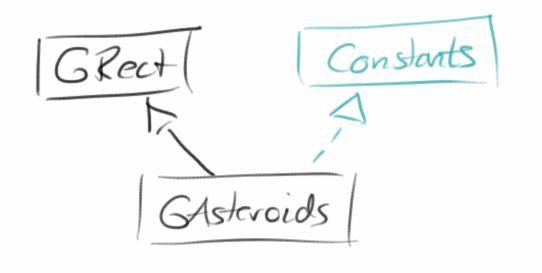 GRect
Constants
GAsteroids